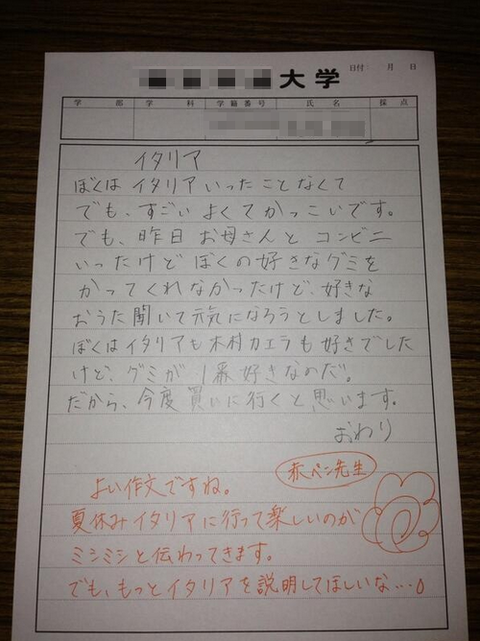 大学
日付 月 日
学部 学科 学籍番号 氏名 採点
イタリア
ぼくはイタリアいったことなくて
でも、すごいよくてかっこいです。
でも、昨日お母さんとコンビニ
いったけどぼくの好きなグミを
かってくれなかったけど、好きな
おうた聞いて元気になろうとしました。
ぼくはイタリアも木村カエラも好きでした
けど、グミが1番好きなのだ。
だから、今度買いに行くと思います。
おわり
赤ペン先生
よい作文ですね。
夏休みイタリアに行って楽しいのが
ミシミシと伝わってきます。
でも、もっとイタリアを説明してほしいな…。